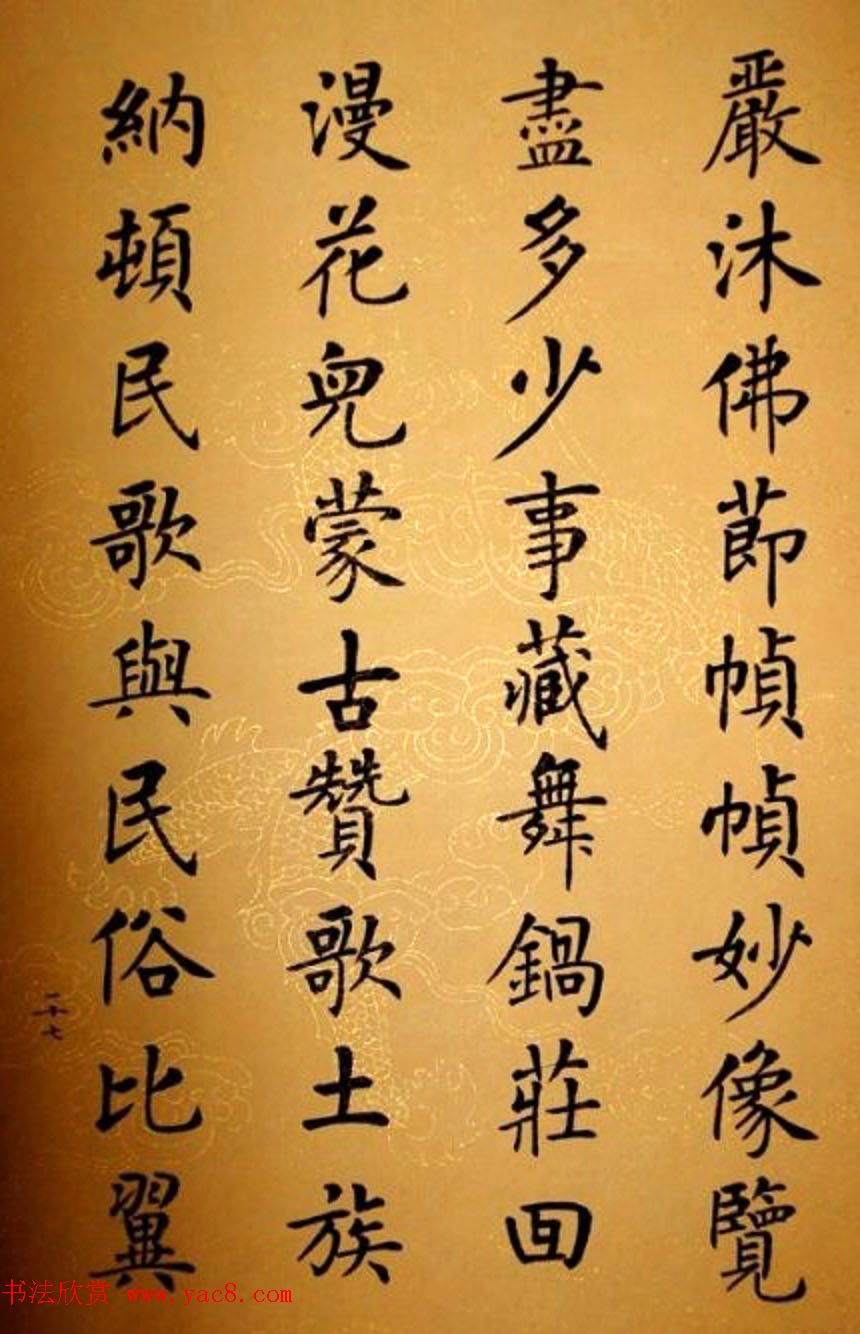 嚴沐佛節幀幀妙像覽
盡多少事藏舞鍋莊回
漫花兒蒙古贊歌土族
納頓民歌與民俗比翼
二十七
书法欣赏 www.yac8.com